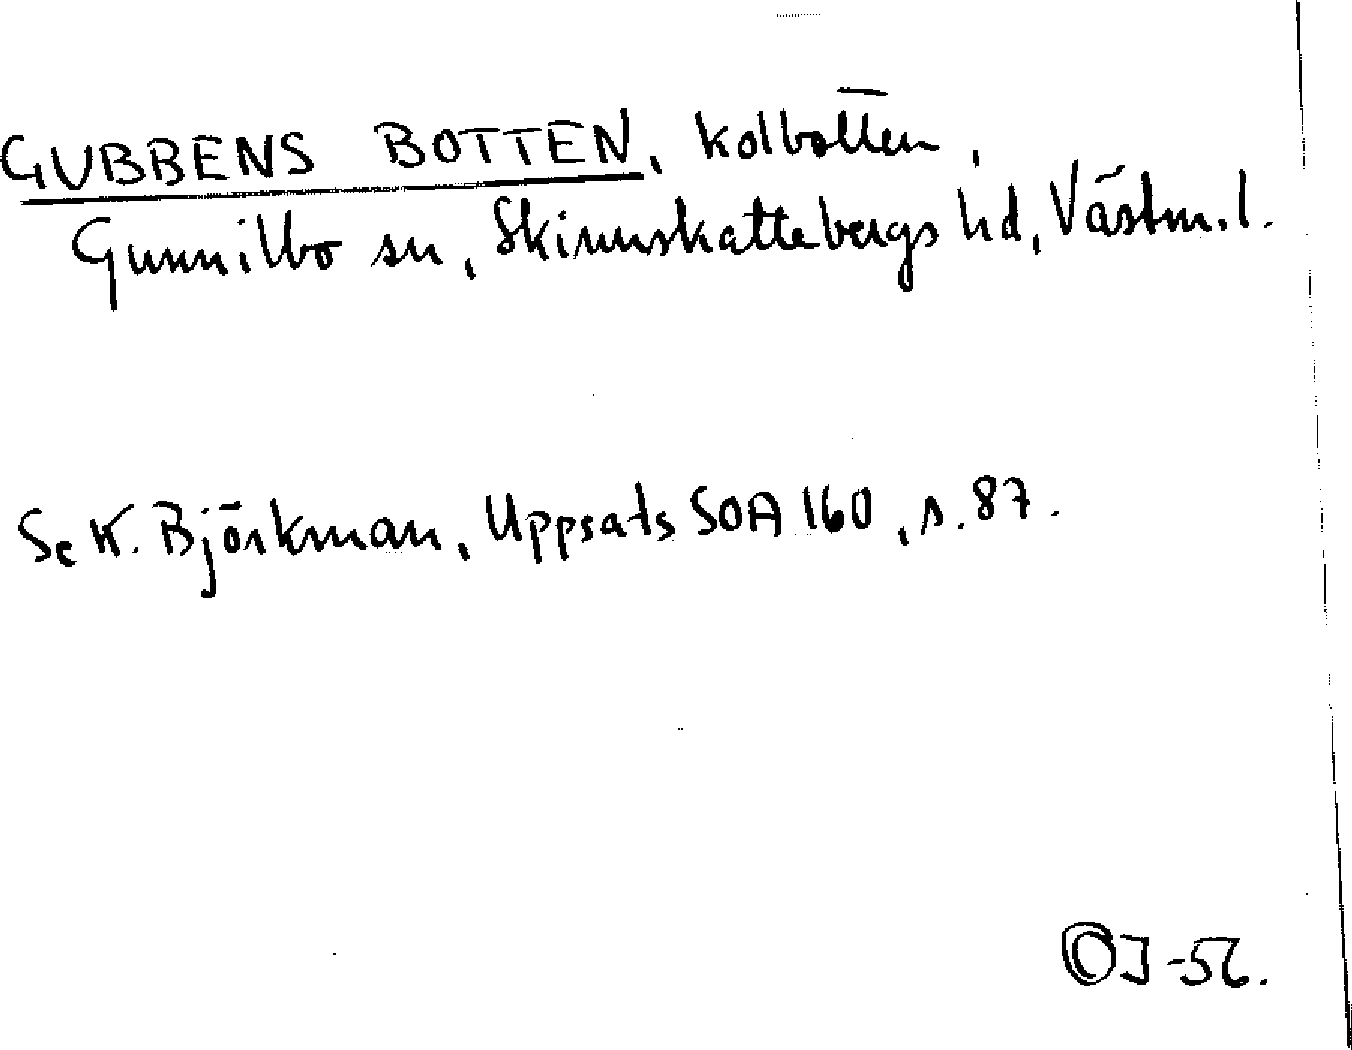 GUBBENS BOTTEN, kolbotten,
Gunnilbo sn, Skinnskattebergs hd, Västm. l.
Se K. Björkman, Uppsats SOA 160, s. 87.
OJ-56.